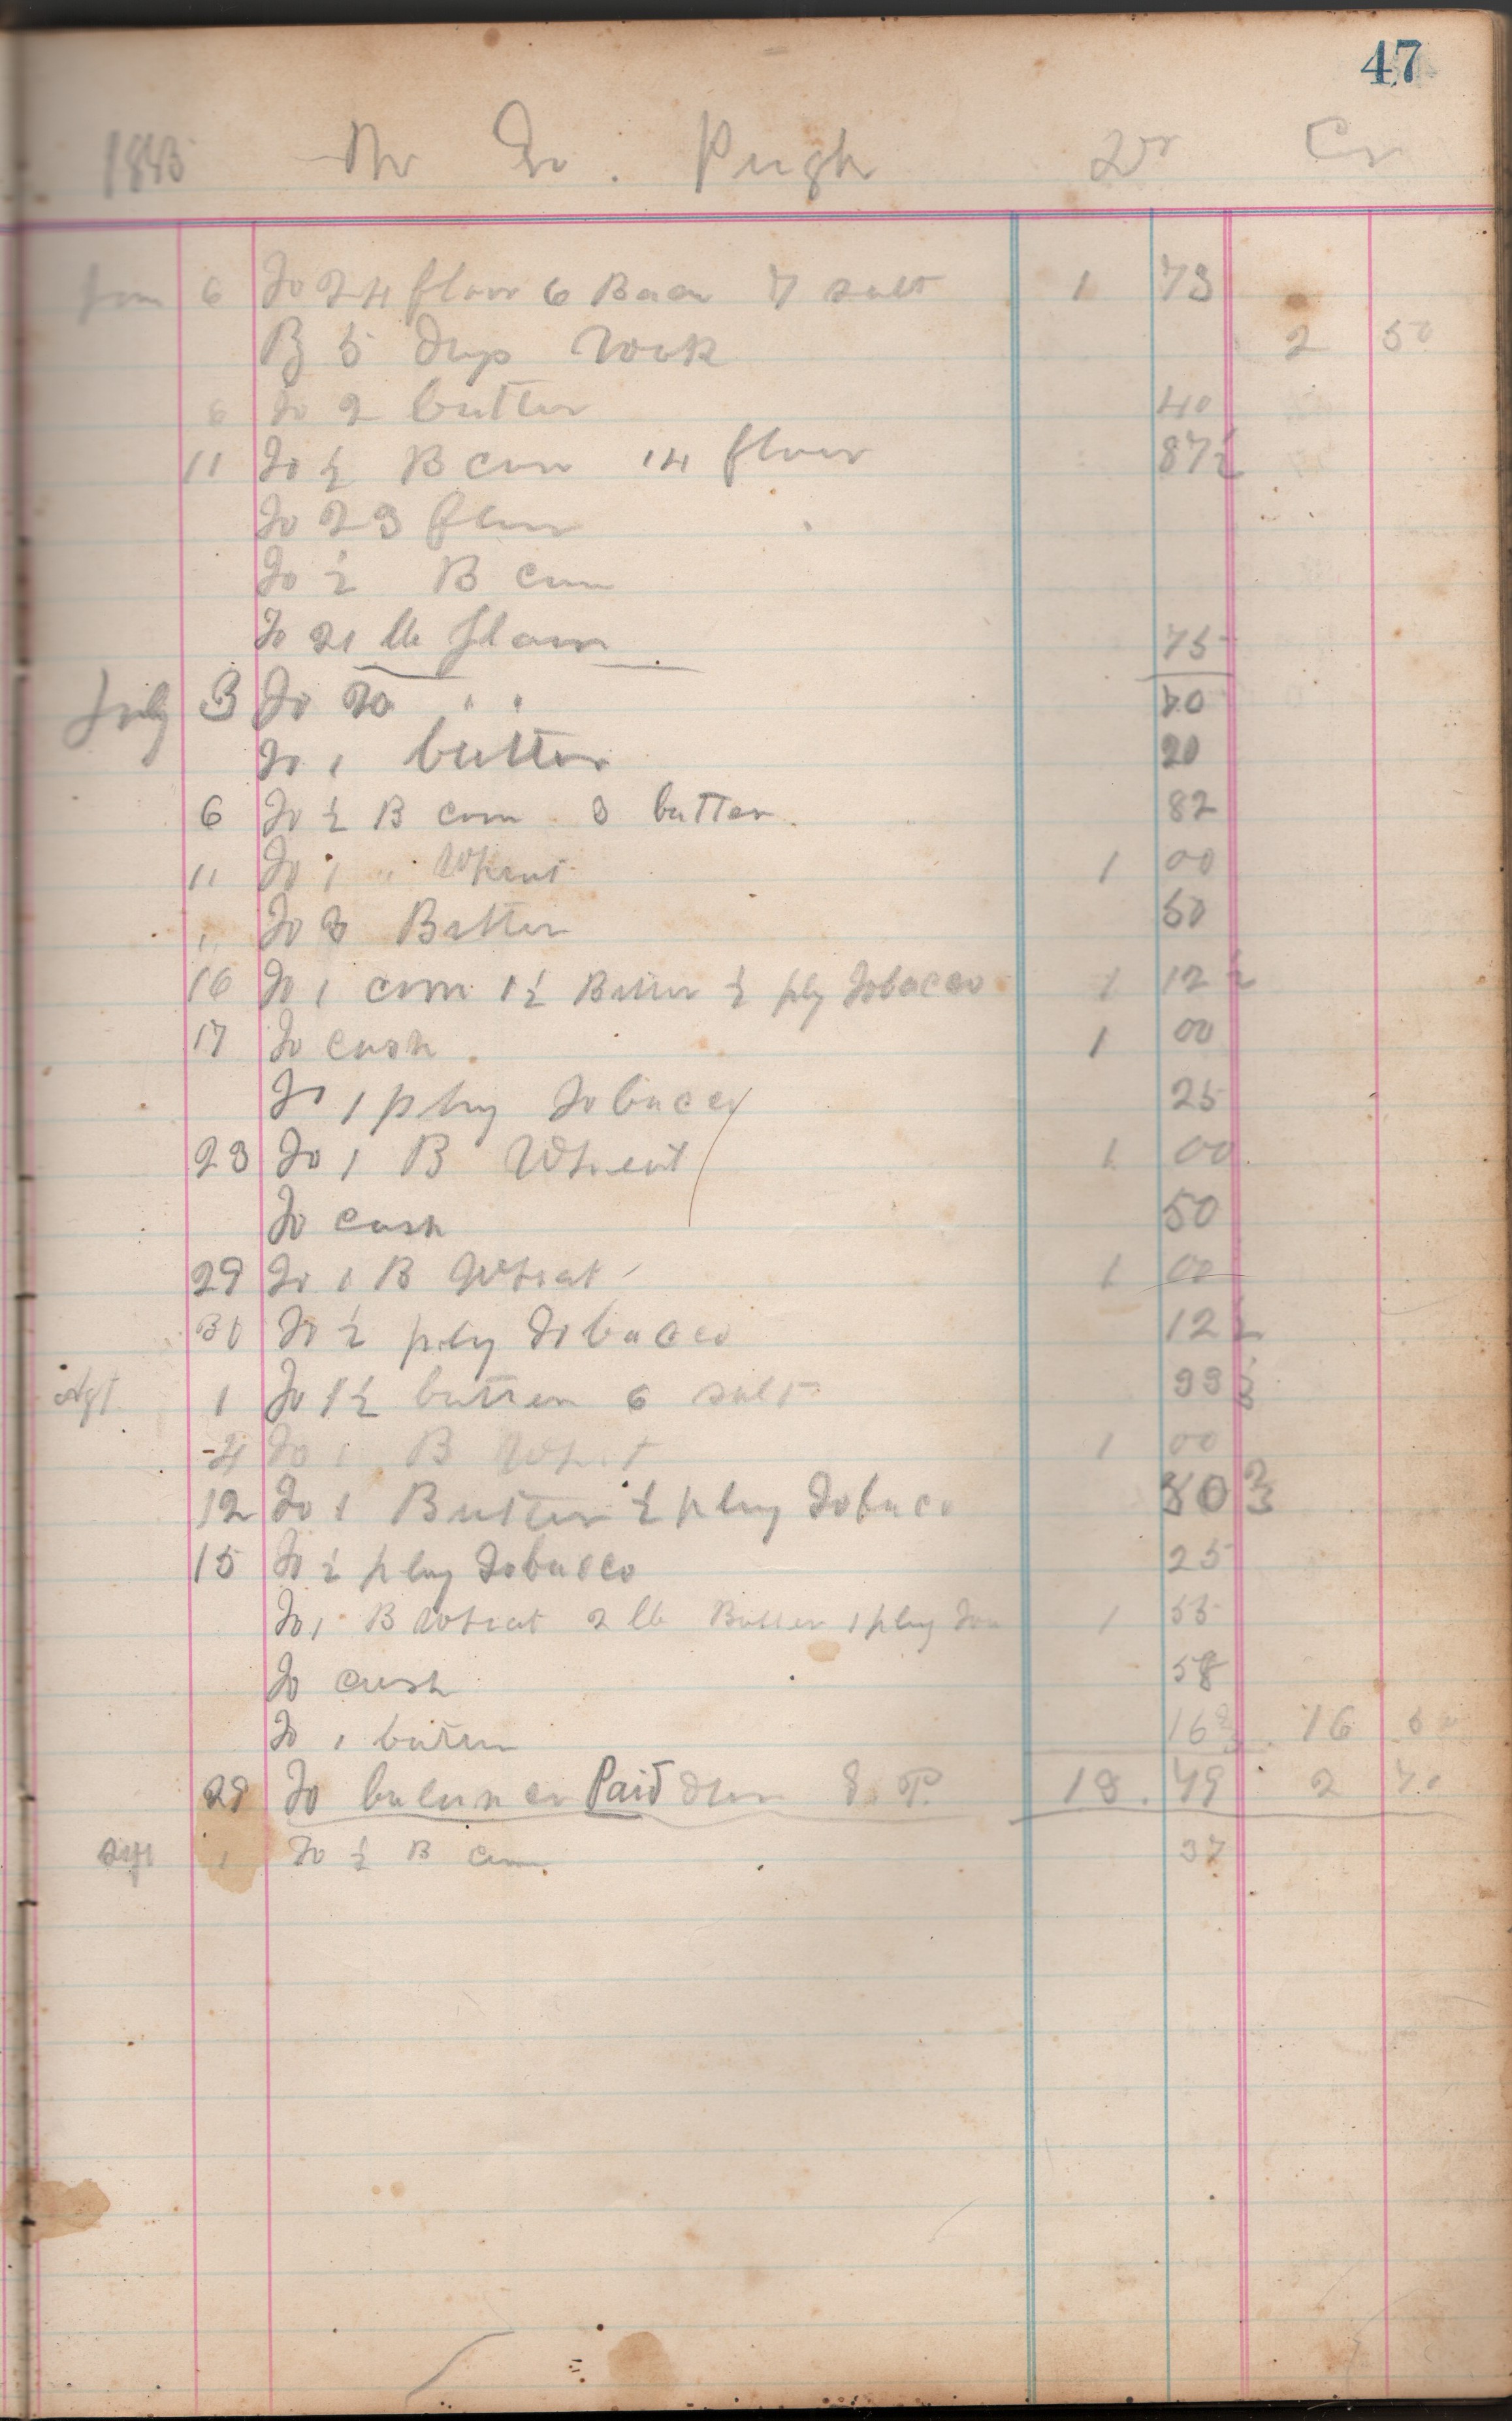 47
Pugh Dr Cr
6 To 24 flour 6 7 salt 1 73
B 5 days work 2 50
6 To 2 butter 40
11 To ½ B corn 14 flour 87½
To 23 flour
To ½ B corn
To 21 lb flour 75
July 3 To 20 " "
To 1 butter 20
6 To ½ B corn 3 butter 82
11 To 1 " Wheat 1 00
" To 3 Butter 50
16 To 1 corn 1½ Butter ½ plug Tobacco 1 12½
17 To cash 1 00
To 1 plug Tobacco 25
23 To 1 B Wheat 1 00
To cash 50
29 To 1 B Wheat 1 00
30 To ½ plug Tobacco 12½
Agt 1 To 1½ butter 6 salt
4 To 1 B 1 00
12 To 1 Butter ½ plug Tobaco
15 To ½ plug Tobacco 25
To 1 B Wheat 2 lb Butter 1 plug 1 55
To cash 58
To 1 butter 16⅔ 16
29 To balance Paid 79 2
To ½ B corn 37